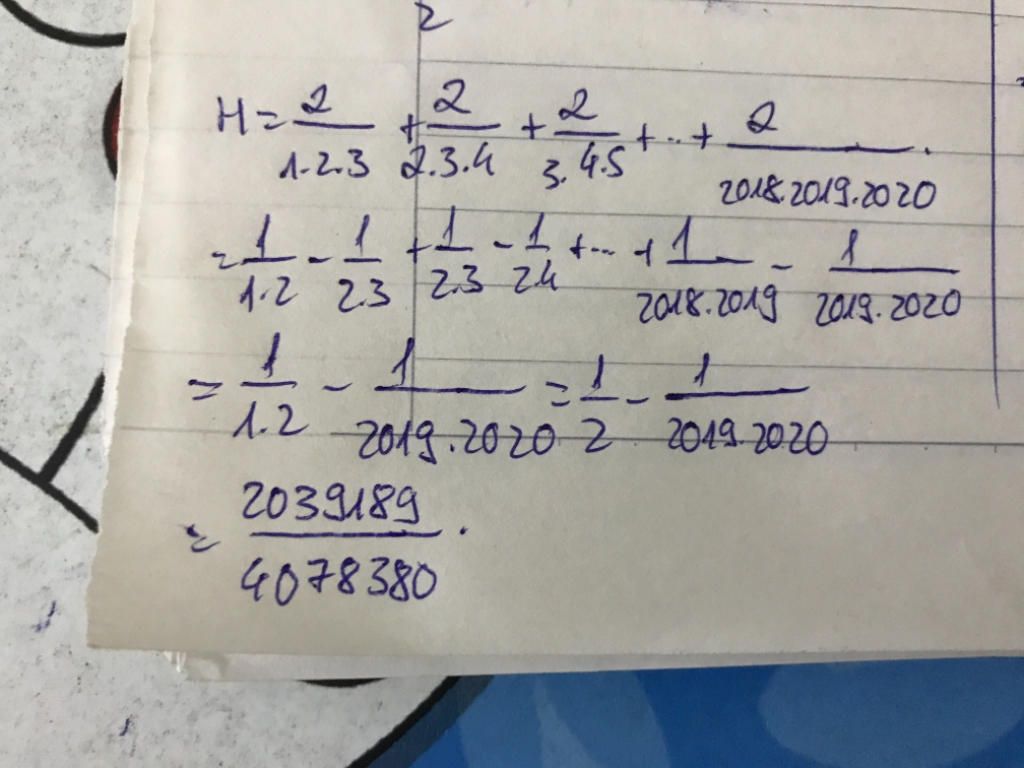 2
H = 2/1.2.3 + 2/2.3.4 + 2/3.4.5 + .. + 2/2018.2019.2020 .
= 1/1.2 - 1/2.3 + 1/2.3 - 1/2.4 + ... + 1/2018.2019 - 1/2019.2020
= 1/1.2 - 1/2019.2020 = 1/2 - 1/2019.2020
= 2039189/4078380 .